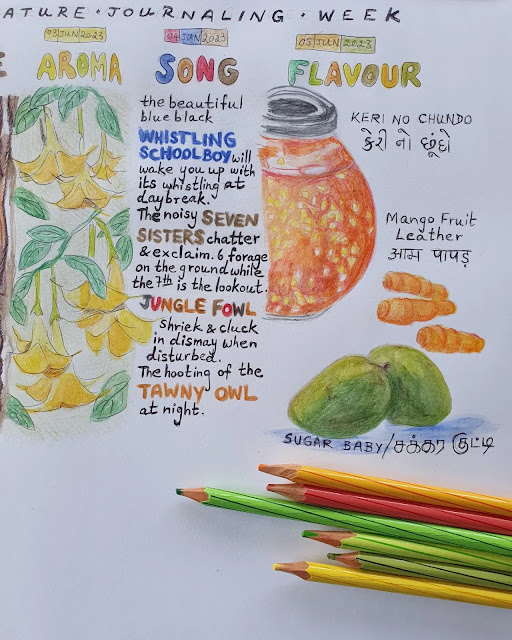 ATURE · JOURNALING · WEEK
03 JUN 2023
AROMA
04 JUN 2023
SONG
the beautiful
blue black
WHISTLING
SCHOOLBOY will
wake you up with
its whistling at
daybreak.
The noisy SEVEN
SISTERS chatter
& exclaim. 6 forage
on the ground while
the 7th is the lookout.
JUNGLE FOWL
shriek & cluck
in dismay when
disturbed.
The hooting of the
TAWNY OWL
at night.
05 JUN 2023
FLAVOUR
KERI NO CHUNDO
કેરી નો છૂંદો
Mango Fruit
Leather
आम पापड़
SUGAR BABY/சக்கர குட்டி